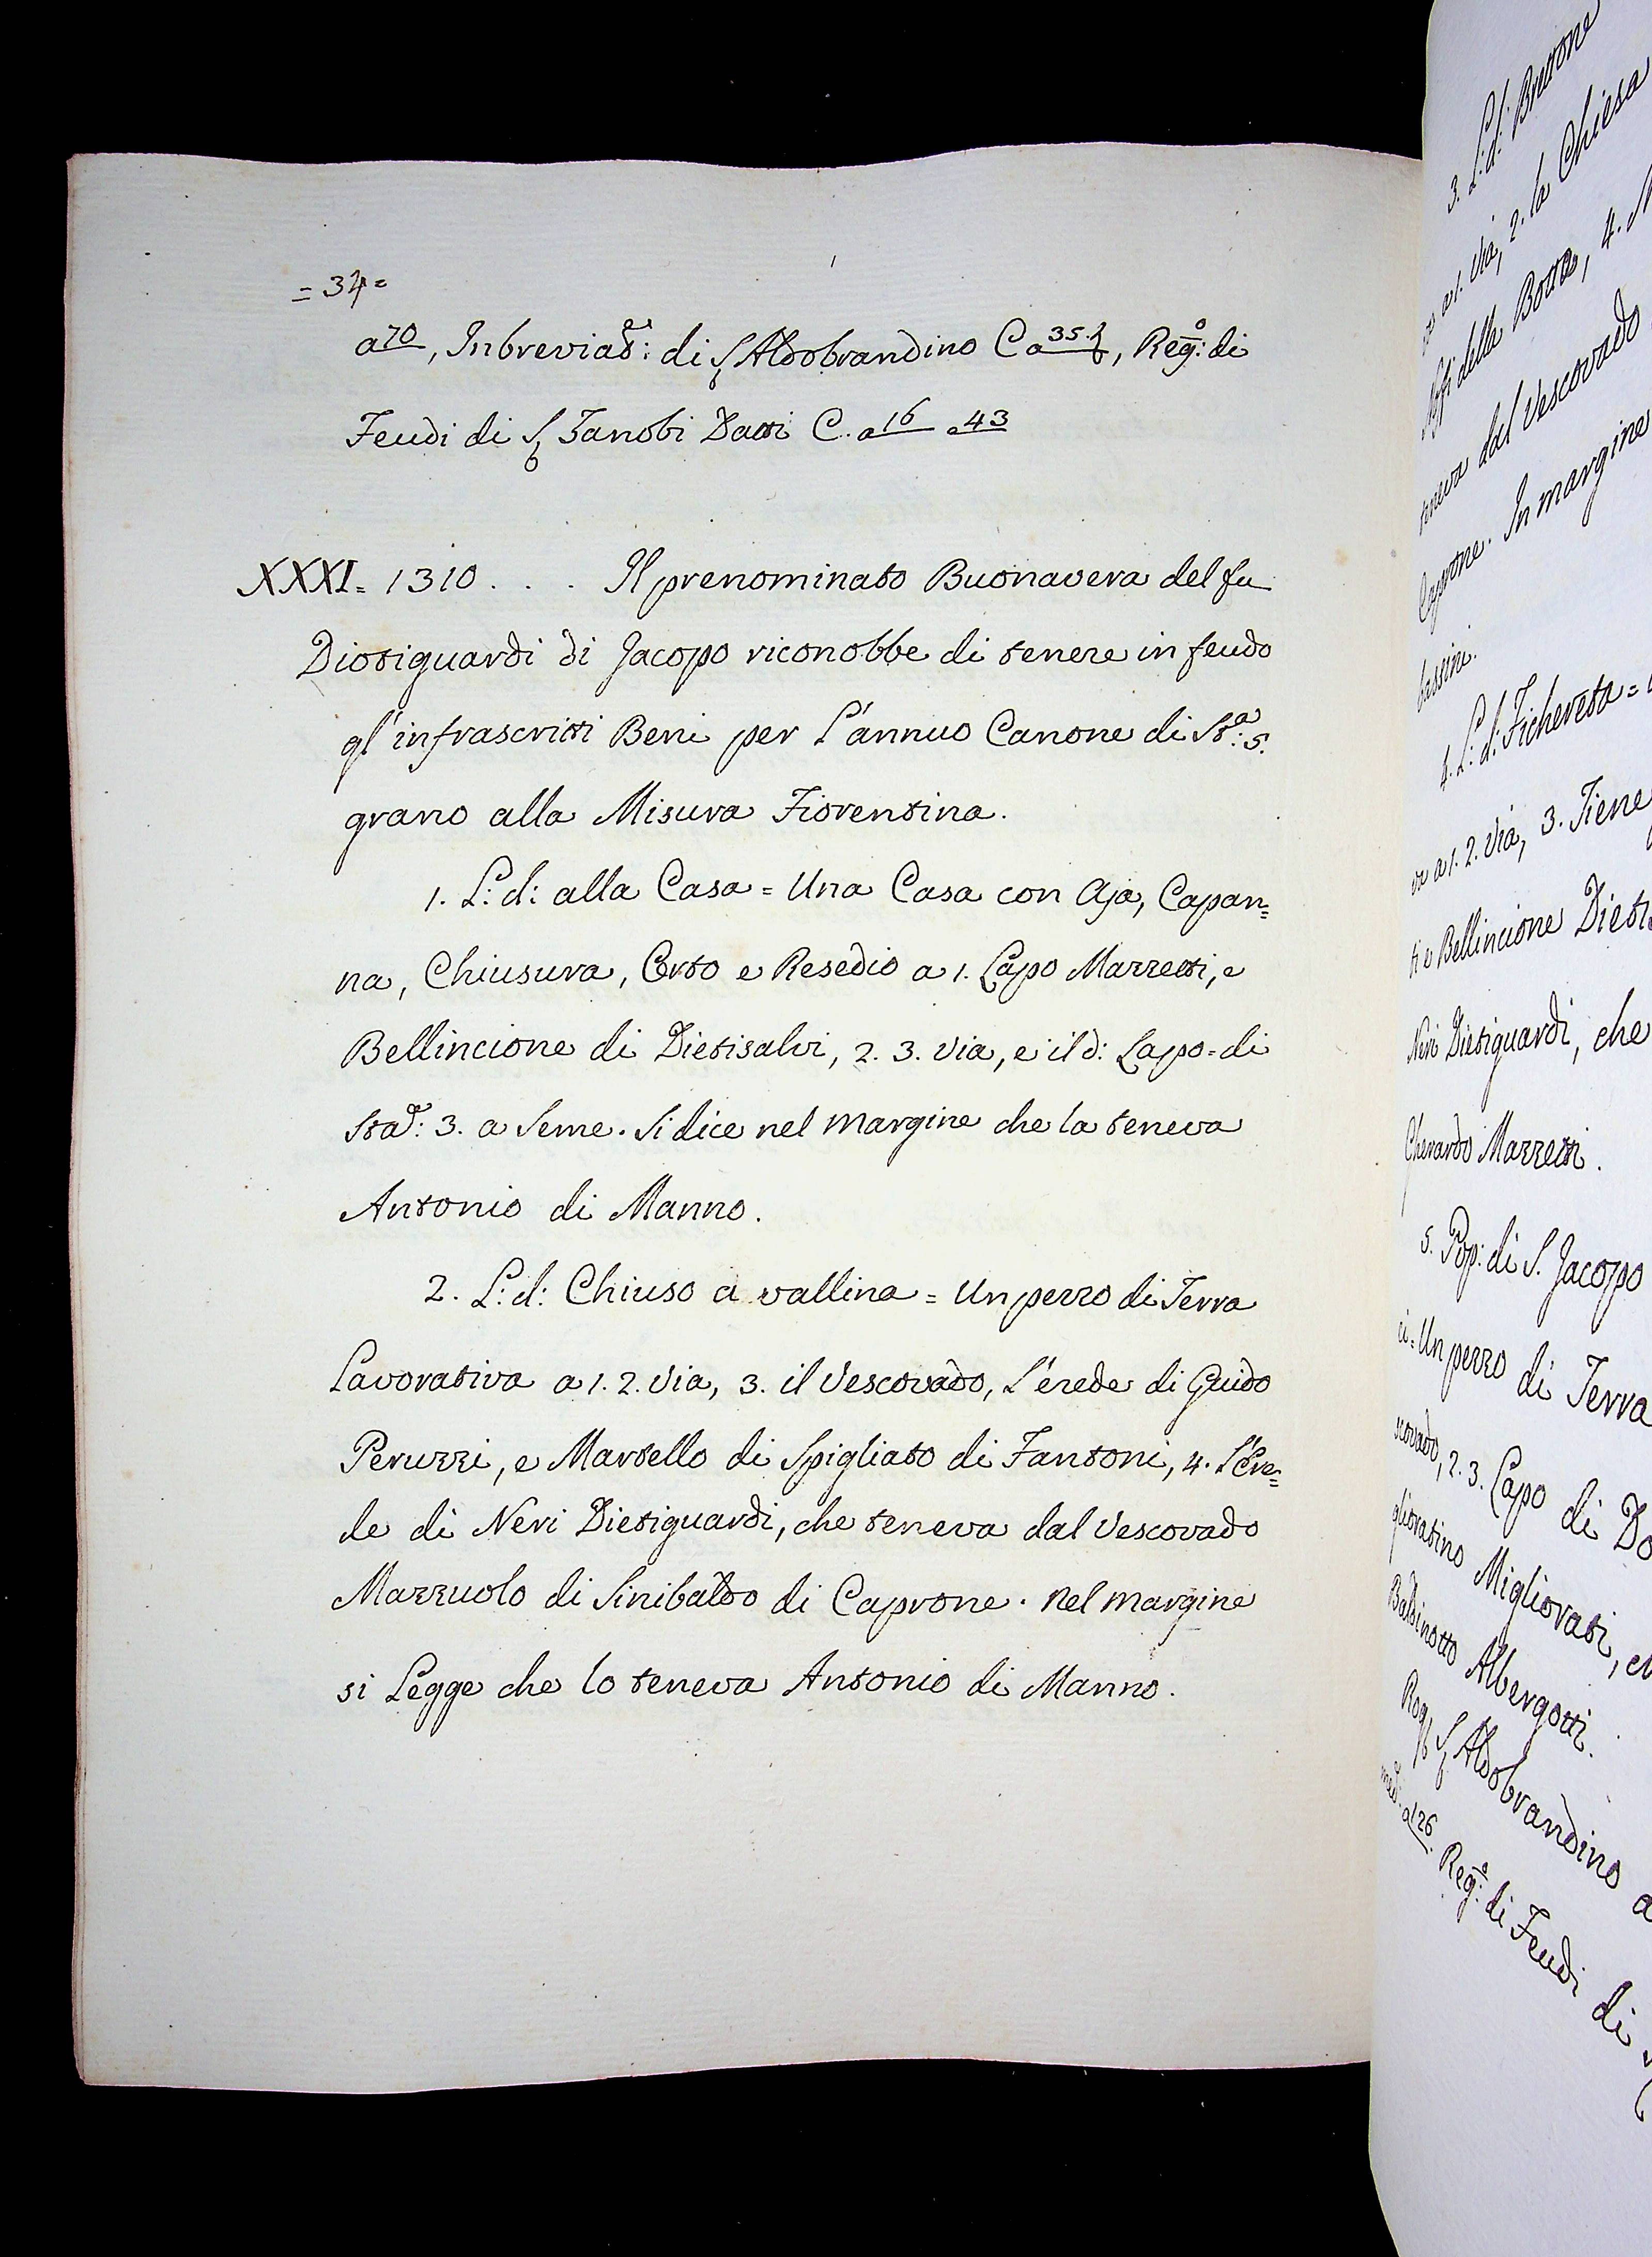 =34=
a 70, Inbreviat.e: di S. Aldobrandino C a 35.t, Reg.o: di
Feudi di S. Zanobi Datti C. a 16 a 43
XXXI= 1310 . . . Il prenominato Buonavera del fu
Diotiguardi di Jacopo riconobbe di tenere in feudo
gl'infrascritti Beni per l'annuo Canone di St.a: 5.
grano alla Misura Fiorentina.
1. L: d: alla Casa = Una Casa con Aja, Capan=
na, Chiusura, Orto e Resedio a 1. Lapo Mazzetti, e
Bellincione di Dietisalvi, 2. 3. Via, e il d: Lapo = di
Staa: 3. a Seme. Si dice nel margine che la teneva
Antonio di Manno.
2. L: d: Chiuso a vallina = Un pezzo di Terra
Lavorativa a 1. 2. Via, 3. il Vescovado, l'erede di Guido
Peruzzi, e Martello di Spigliato di Fantoni, 4. l'ere=
de di Neri Dietiguardi, che teneva dal Vescovado
Mazzuolo di Sinibaldo di Caprone. Nel margine
si Legge che lo teneva Antonio di Manno.
3. L: d: Bruttone
a 1. Via, 2. la Chiesa
della Botte, 4.
dal Vescovado
Caprone. In margine
4. L: d: Fichereto =
a 1. 2. Via, 3. Tiene
e Bellincione
Neri Dietiguardi, che
Gherardo Mazzetti.
5. Pop: di S. Jacopo
Un pezzo di Terra
2. 3. Lapo di
Migliorati,
Baldinotto Albergotti.
Rog. S. Aldobrandino
a 126. Reg.o: di Feudi di